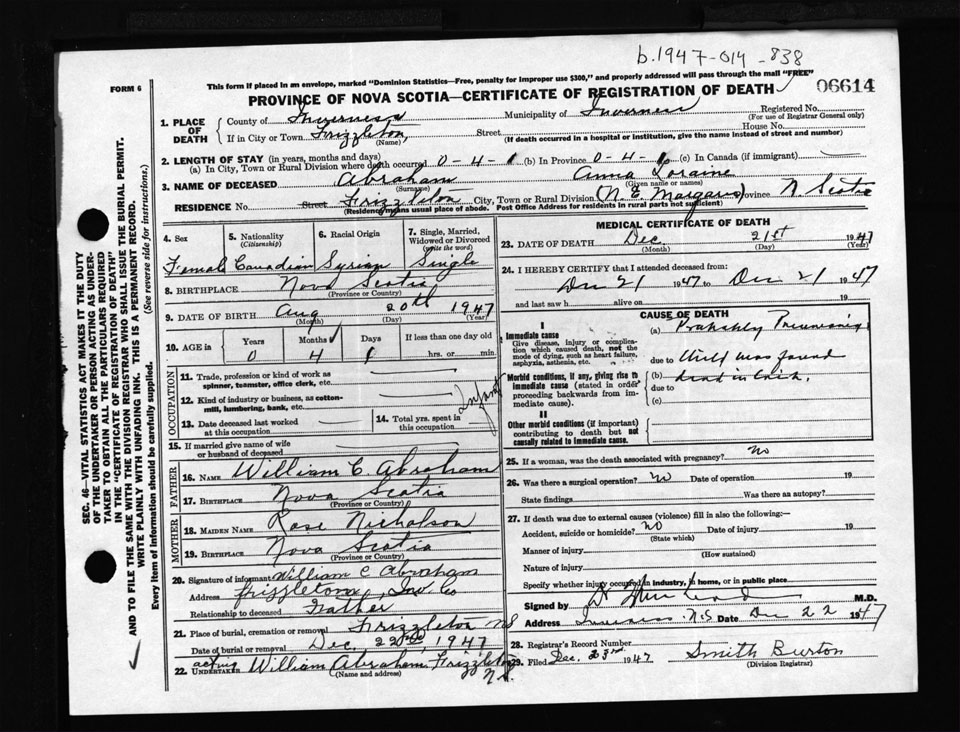 b.1947-014-838
FORM 6
This form if placed in an envelope, marked "Dominion Statistics—Free, penalty for improper use $300," and properly addressed will pass through the mail "FREE"
06614
PROVINCE OF NOVA SCOTIA—CERTIFICATE OF REGISTRATION OF DEATH
1. PLACE OF DEATH
County of Inverness Municipality of Inverness Registered No.
(For use of Registrar General only)
If in City or Town Frizzleton, Street House No.
(Name) (If death occurred in a hospital or institution, give the name instead of street and number)
2. LENGTH OF STAY (in years, months and days)
(a) In City, Town or Rural Division where death occurred 0-4-1 (b) In Province 0-4-1 (c) In Canada (if immigrant)
3. NAME OF DECEASED Abraham Anna Loraine
(Surname) (Given name or names)
RESIDENCE No. Street Frizzleton City, Town or Rural Division (N. E. Margaree) Province N Scotia
(Residence means usual place of abode. Post Office Address for residents in rural parts not sufficient)
4. Sex
Female
5. Nationality
(Citizenship)
Canadian
6. Racial Origin
Syrian
7. Single, Married, Widowed or Divorced
(write the word)
Single
8. BIRTHPLACE Nova Scotia
(Province or Country)
9. DATE OF BIRTH Aug 20th 1947
(Month) (Day) (Year)
10. AGE in Years Months Days If less than one day old
0 4 1 hrs. or min.
OCCUPATION
11. Trade, profession or kind of work as
spinner, teamster, office clerk, etc.
12. Kind of industry or business, as cotton-
mill, lumbering, bank, etc.
Infant
13. Date deceased last worked at this occupation
14. Total yrs. spent in this occupation
15. If married give name of wife
or husband of deceased
FATHER
16. Name William C. Abraham
17. Birthplace Nova Scotia
(Province or Country)
MOTHER
18. Maiden Name Rose Nicholson
19. Birthplace Nova Scotia
(Province or Country)
20. Signature of informant William C Abraham
Address Frizzleton, Inv Co
Relationship to deceased Father
21. Place of burial, cremation or removal Frizzleton NS
Date of burial or removal Dec. 22nd, 1947
acting
22. UNDERTAKER William Abraham Frizzleton
(Name and address) N.S.
MEDICAL CERTIFICATE OF DEATH
23. DATE OF DEATH Dec 21st 1947
(Month) (Day) (Year)
24. I HEREBY CERTIFY that I attended deceased from:
Dec 21 1947 to Dec 21 1947
and last saw h alive on 19
CAUSE OF DEATH
I
Immediate cause
Give disease, injury or complication which caused death, not the mode of dying, such as heart failure, asphyxia, asthenia, etc.
(a) Probably Pneumonia
due to Child was found
Morbid conditions, if any, giving rise to immediate cause (stated in order proceeding backwards from immediate cause).
(b) dead in crib.
due to
(c)
II
Other morbid conditions (if important) contributing to death but not causally related to immediate cause.
25. If a woman, was the death associated with pregnancy? no
26. Was there a surgical operation? no Date of operation 19
State findings Was there an autopsy?
27. If death was due to external causes (violence) fill in also the following:—
Accident, suicide or homicide? no Date of injury 19
(State which)
Manner of injury
(How sustained)
Nature of injury
Specify whether injury occurred in industry, in home, or in public place
Signed by M.D.
Address Inverness N.S Date Dec 22 1947
28. Registrar's Record Number
29. Filed Dec. 23rd 1947 Smith Burton
(Division Registrar)
SEC. 46—VITAL STATISTICS ACT MAKES IT THE DUTY
OF THE UNDERTAKER OR PERSON ACTING AS UNDER-
TAKER TO OBTAIN ALL THE PARTICULARS REQUIRED
IN THE "CERTIFICATE OF REGISTRATION OF DEATH"
AND TO FILE THE SAME WITH THE DIVISION REGISTRAR WHO SHALL ISSUE THE BURIAL PERMIT.
WRITE PLAINLY WITH UNFADING INK. THIS IS A PERMANENT RECORD.
Every item of information should be carefully supplied. (See reverse side for instructions.)